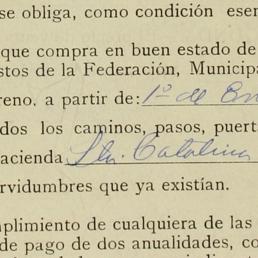 se obliga, como condición esen
que compra en buen estado de
stos de la Federación, Municipa
reno, a partir de: 1º de En
dos los caminos, pasos, puert
acienda Sta. Catalina
rvidumbres que ya existían.
mplimiento de cualquiera de las
de pago de dos anualidades, co